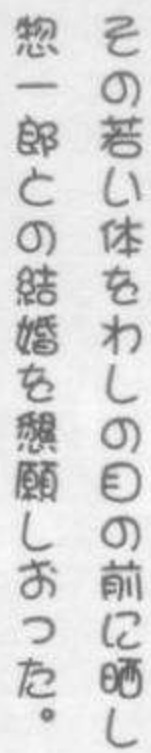 その若い体をわしの目の前に晒し
惣一郎との結婚を懇願しおった。